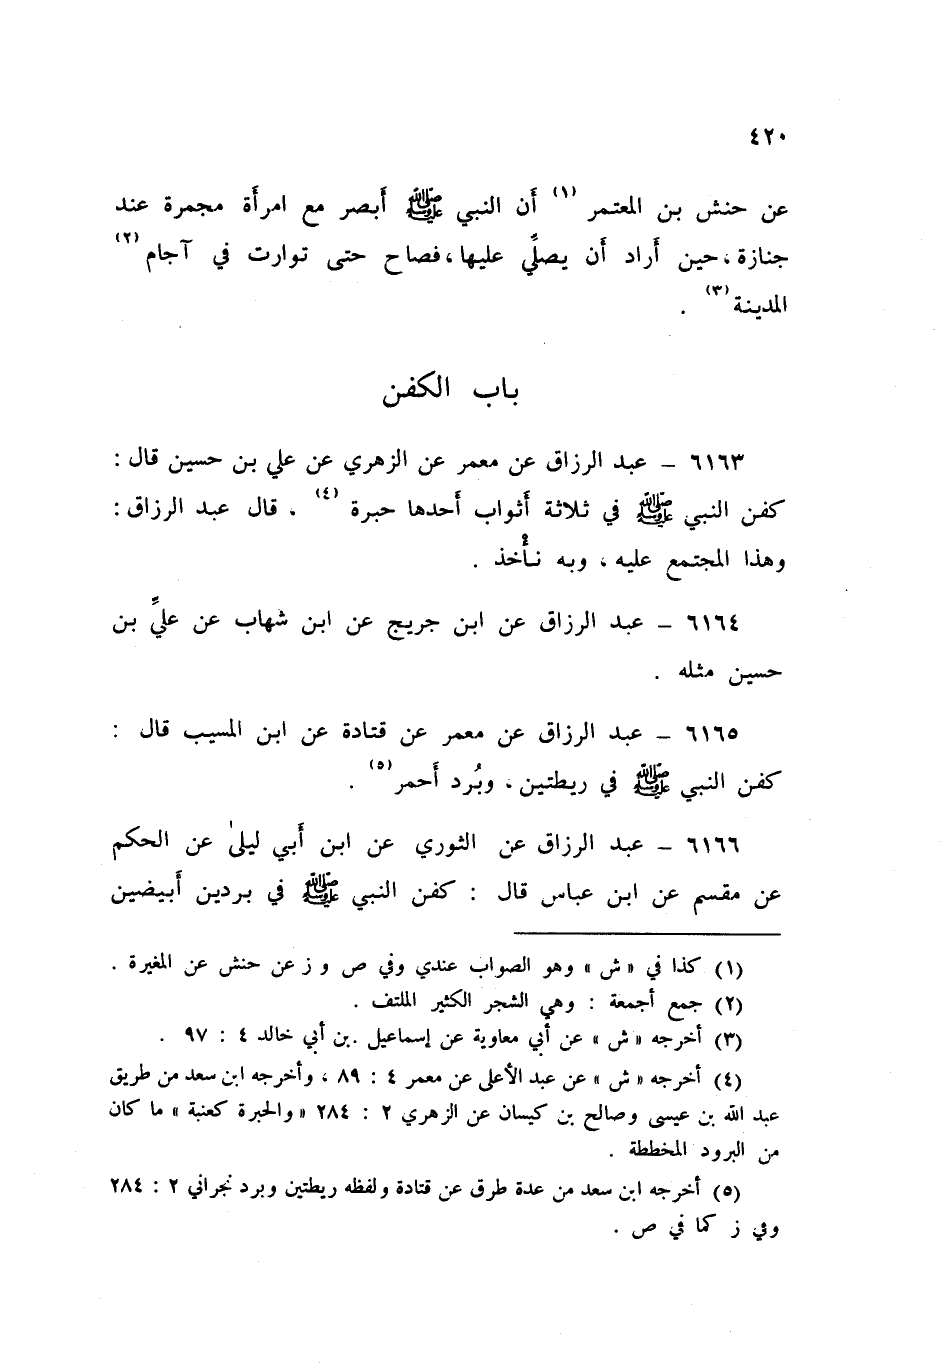 ٤٢٠
عن حنش بن المعتمر (١) أن النبي ﷺ أبصر مع امرأة مجمرة عند
جنازة ، حين أراد أن يصلِّي عليها ، فصاح حتى توارت في آجام (٢)
المدينة (٣) .
باب الكفن
٦١٦٣ – عبد الرزاق عن معمر عن الزهري عن علي بن حسين قال :
كفن النبي ﷺ في ثلاثة أثواب أحدها حبرة (٤) . قال عبد الرزاق :
وهذا المجتمع عليه ، وبه نأْخذ .
٦١٦٤ – عبد الرزاق عن ابن جريج عن ابن شهاب عن عليٍّ بن
حسين مثله .
٦١٦٥ – عبد الرزاق عن معمر عن قتادة عن ابن المسيب قال :
كفن النبي ﷺ في ريطتين ، وبُرد أحمر (٥) .
٦١٦٦ – عبد الرزاق عن الثوري عن ابن أبي ليلىٰ عن الحكم
عن مقسم عن ابن عباس قال : كفن النبي ﷺ في بردين أبيضين
(١) كذا في « ش » وهو الصواب عندي وفي ص و ز عن حنش عن المغيرة .
(٢) جمع أجمعة : وهي الشجر الكثير الملتف .
(٣) أخرجه « ش » عن أبي معاوية عن إسماعيل .بن أبي خالد ٤ : ٩٧ .
(٤) أخرجه « ش » عن عبد الأعلى عن معمر ٤ : ٨٩ ، وأخرجه ابن سعد من طريق
عبد الله بن عيسى وصالح بن كيسان عن الزهري ٢ : ٢٨٤ « والحبرة كعنبة » ما كان
من البرود المخططة .
(٥) أخرجه ابن سعد من عدة طرق عن قتادة ولفظه ريطتين وبرد نجراني ٢ : ٢٨٤
وفي ز كما في ص .